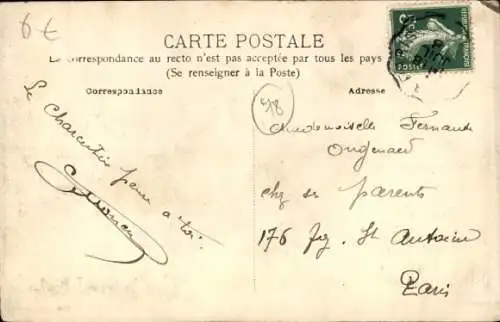 67
CARTE POSTALE
La correspondance au recto n'est pas acceptée par tous les pays
(Se renseigner à la Poste)
Correspondance
Adresse
78
Le Charentais pense à toi
Mademoiselle Fernande
chez ses parents
176 fg. St Antoine
Paris
POSTES